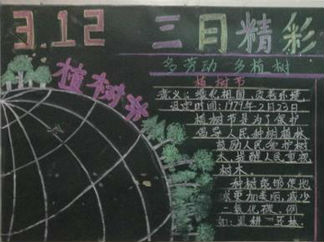 3.12 三月精彩
多劳动 多植树
植树节
植树节
意义:绿化祖国,改善环境
设定时间:1979年2月23日
植树节是为了保护
倡导人民种树植林
鼓励人民爱护树
木,提醒人民重视
树木。
种树能够使地
球更加美丽,减少
二氧化碳。例
如: